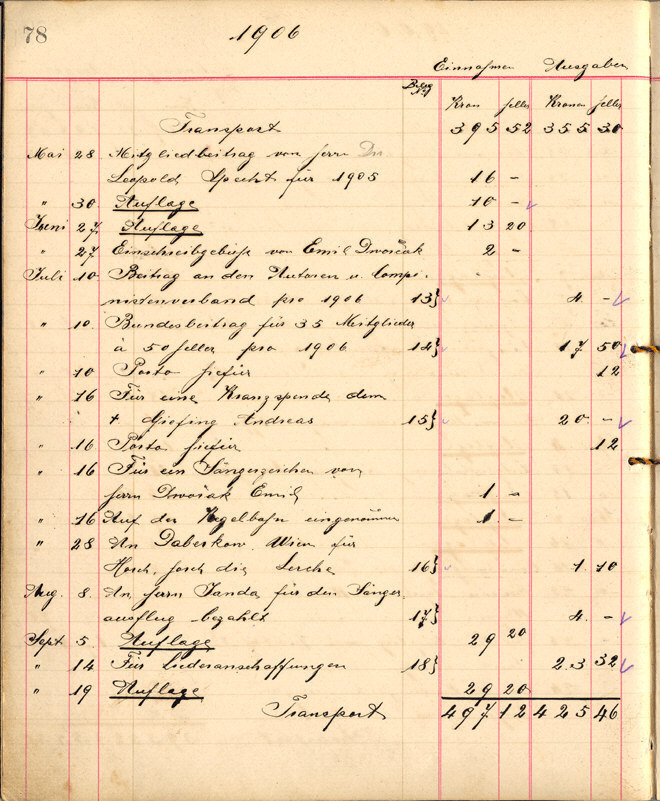 78
1906
Einnahmen Ausgaben
Beleg No
Kron Heller Kronen Heller
Transport 395 52 355 30
Mai 28 Mitgliedbeitrag von Herrn Dr
Leopold Specht für 1905 16 –
" 30. Auflage 10 –
Juni 27. Auflage 13 20
" 27 Einschreibgebühr von Emil Dwořak 2 –
Juli 10. Beitrag an den Autoren u. Compo-
nistenverband pro 1906 13} 4. –
" 10. Bundesbeitrag für 35 Mitglieder
à 50 Heller pro 1906 14} 17 50
" 10 Porto hiefür 12
" 16 Für eine Kranzspende dem
† Giefing Andreas 15} 20. –
" 16 Porto hiefür 12
" 16 Für ein Sängerzeichen von
Herrn Dwořak Emil 1 –
" 16 Auf der Kegelbahn eingenommen 1. –
" 28 An Daberkow. Wien für
Horch, horch die Lerche 16} 1. 10
Aug. 8. An Herrn Janda für den Sänger-
ausflug bezahlt 17} 4. –
Sept 5. Auflage 29 20
" 14 Für Liederanschaffungen 18} 23 32
" 19 Auflage 29 20
Transport 497 12 425 46